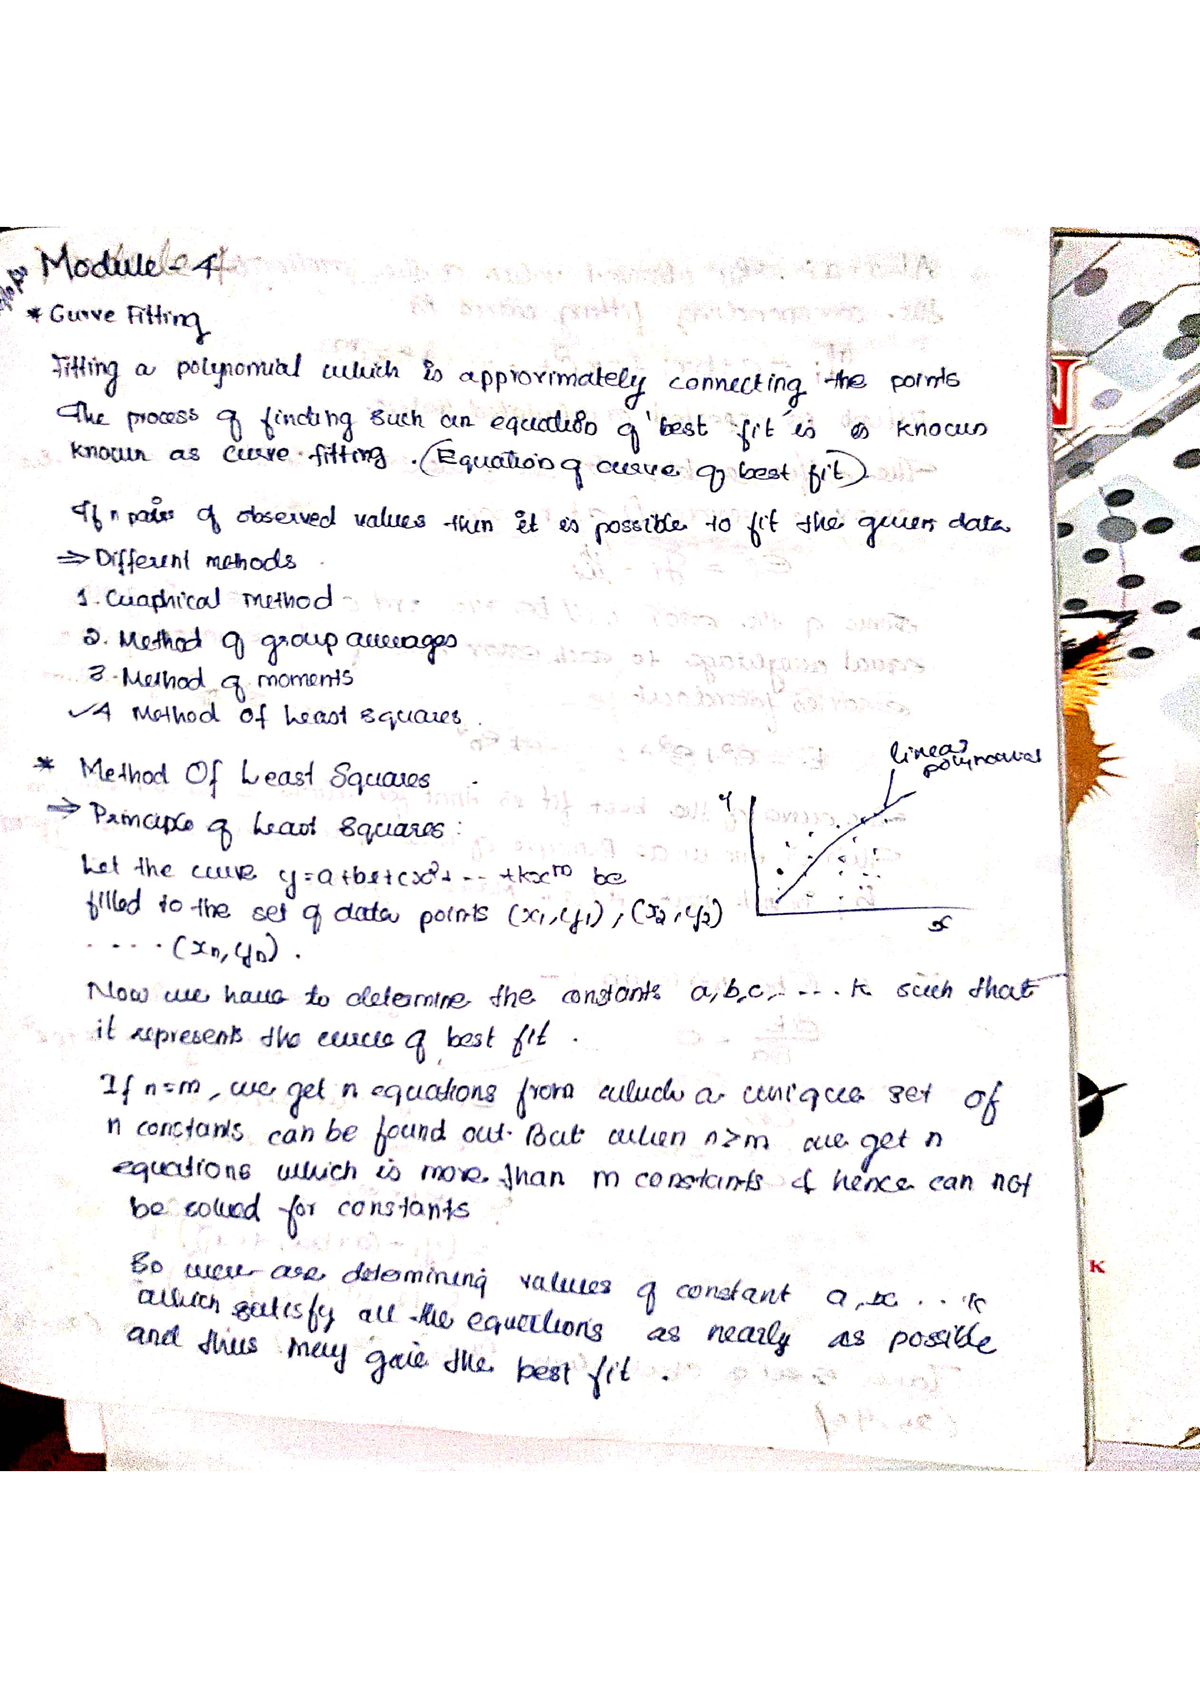 Module - 4
* Curve Fitting
Fitting a polynomial which is approximately connecting the points
The process of finding such an equation of 'best fit' is known
known as curve fitting. (Equation of curve of best fit)
If n pairs of observed values then it is possible to fit the given data
⇒ Different methods
1. Graphical method
2. Method of group averages
3. Method of moments
✓4 Method of Least squares.
* Method Of Least Squares
⇒ Principle of Least Squares:
linear
polynomial
y
x
Let the curve y=a+bx+cx²+ -- +kx^m be
filled to the set of data points (x₁,y₁), (x₂,y₂)
..... (xₙ,yₙ).
Now we have to determine the constants a,b,c,.... k such that
it represents the curve of best fit.
If n=m, we get n equations from which a unique set of
n constants can be found out. But when n>m we get n
equations which is more than m constants & hence can not
be solved for constants
So we are determining values of constant a, .. k
which satisfy all the equations as nearly as possible
and thus may give the best fit.
N
K